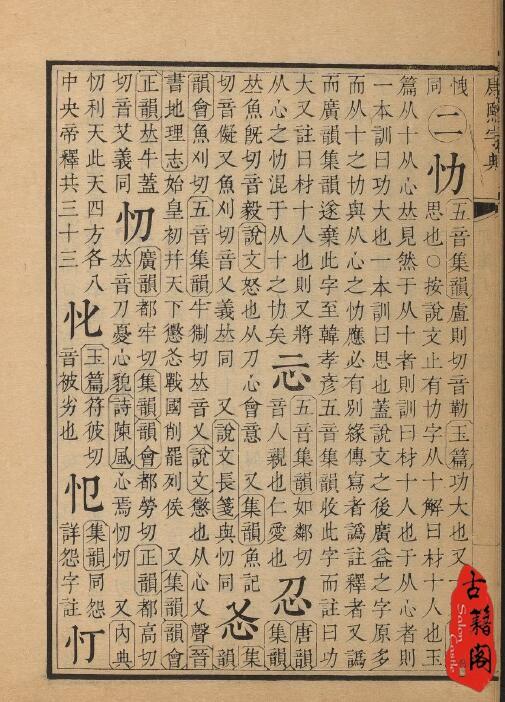 康熙字典
愧
同
二
忇
五音集韻盧則切音勒玉篇功大也又
思也○按說文止有忇字从十解曰材十人也玉
篇从十从心𠀤見然于从十者則訓曰材十人也于从心者則
一本訓曰功大也一本訓曰思也蓋說文之後廣益之字原多
而从十之忇與从心之忇應必有別緣傳寫者譌註釋者又譌
而廣韻集韻遂棄此字至韓孝彥五音集韻收此字而註曰功
大又註曰材十人也則又將
从心之忇混于从十之忇矣
忈
五音集韻如鄰切
音人親也仁愛也
忍
唐韻
集韻
𠀤魚旣切音毅說文怒也从刀心會意 又集韻魚記
切音儗又魚刈切音乂義𠀤同 又說文長箋與忉同
㣻
韻
韻會魚刈切五音集韻牛制切𠀤音乂說文懲也从心乂聲晉
書地理志始皇初幷天下懲㣻戰國削罷列侯 又集韻韻會
正韻𠀤牛蓋
切音艾義同
忉
廣韻都牢切集韻韻會都勞切正韻都高切
𠀤音刀憂心貌詩陳風心焉忉忉 又內典
忉利天此天四方各八
中央帝釋共三十三
玉篇符彼切
音被劣也
集韻同怨
詳怨字註
忊
古籍阁
Salon Castle